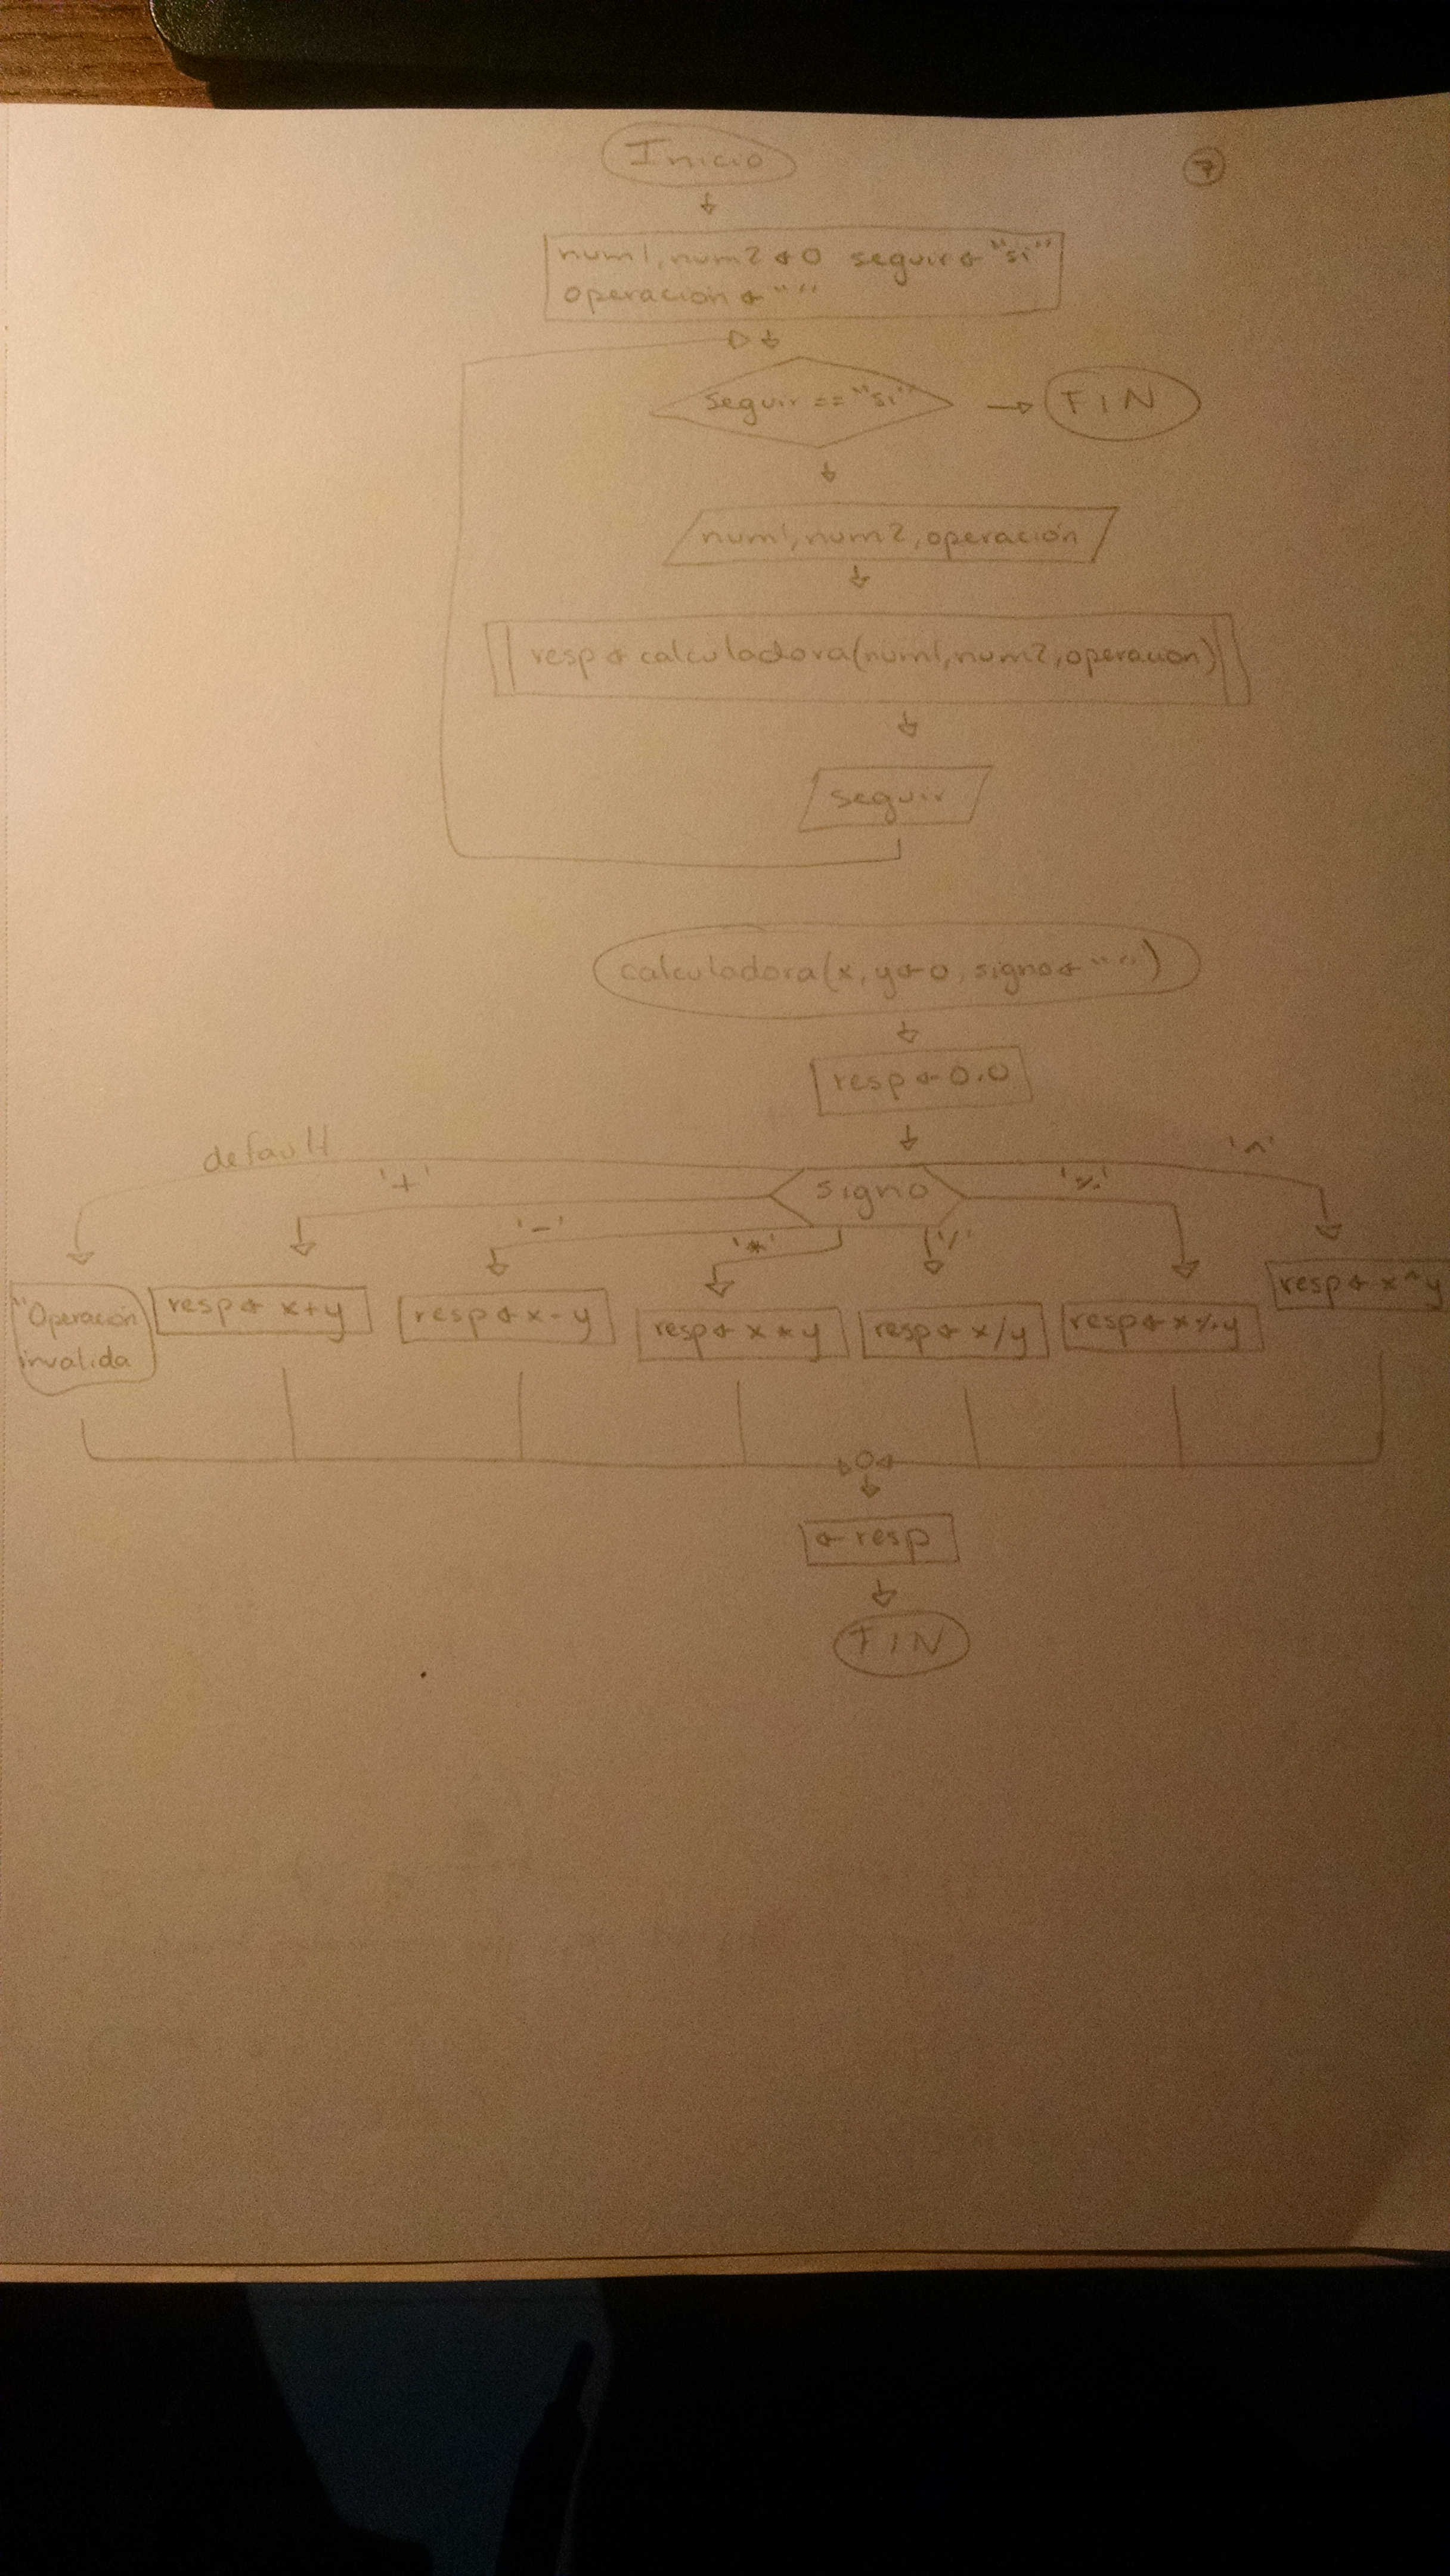 Inicio
7
num1, num2 ← 0 seguir ← "si"
operación ← " "
seguir == "si"
FIN
num1, num2, operación
resp ← calculadora(num1, num2, operacion)
seguir
calculadora(x, y ← 0, signo ← " ")
resp ← 0.0
default
'+'
'-'
'*'
'/'
'%'
'^'
signo
"Operación
invalida
resp ← x+y
resp ← x-y
resp ← x*y
resp ← x/y
resp ← x%y
resp ← x^y
← resp
FIN